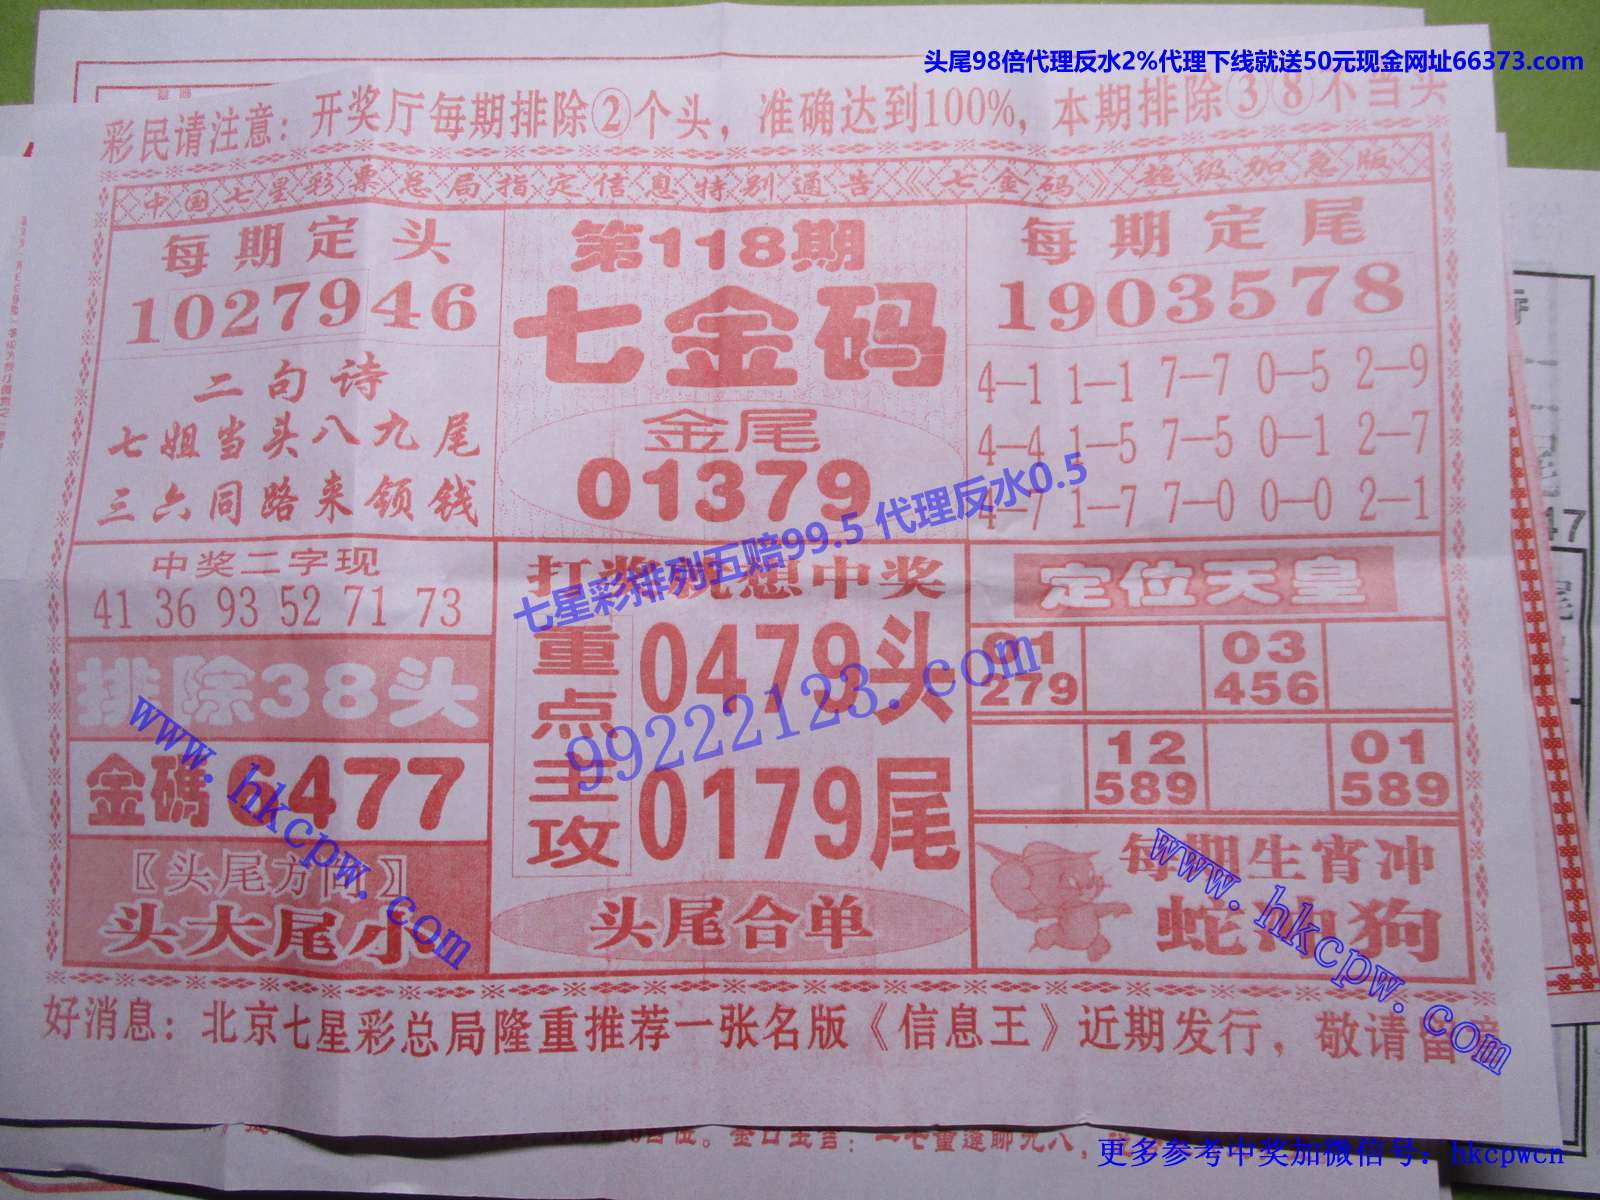 头尾98倍代理反水2%代理下线就送50元现金网址66373.com
彩民请注意：开奖厅每期排除②个头，准确达到100%，本期排除③⑧不当头
中国七星彩票总局指定信息特别通告《七金码》超级加急版
每期定头
1027946
二句诗
七姐当头八九尾
三六同路来领钱
第118期
七金码
金尾
01379
每期定尾
1903578
4—1 1—1 7—7 0—5 2—9
4—4 1—5 7—5 0—1 2—7
4—7 1—7 7—0 0—0 2—1
中奖二字现
41 36 93 52 71 73
排除38头
金碼6477
〖头尾方向〗
头大尾小
打奖就想中奖
重点主攻
0479头
0179尾
头尾合单
定位天皇
01
279
03
456
12
589
01
589
每期生宵冲
蛇 狗
好消息：北京七星彩总局隆重推荐一张名版《信息王》近期发行，敬请留
七星彩排列五赔99.5 代理反水0.5
99222123.com
www.hkcpw.com
www.hkcpw.com
更多参考中奖加微信号：hkcpwcn